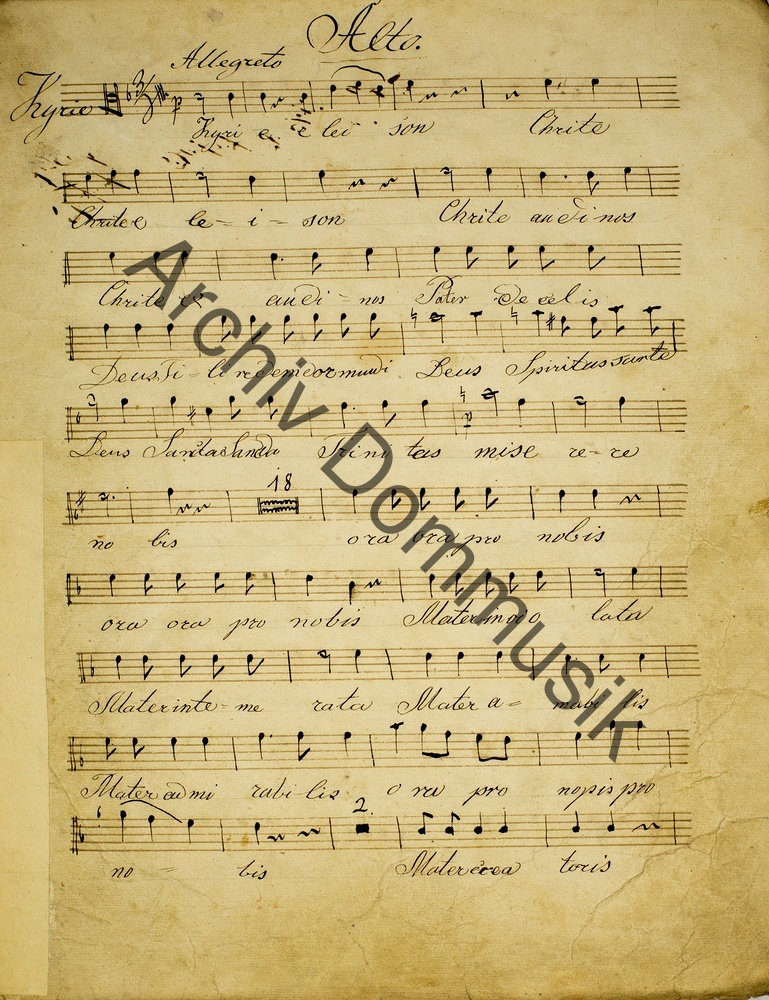 Alto.
Allegreto
Kyrie
Kyri e e lei son Chrite
Chrite e le - i - son Chrite audi nos
Chrite e audi - nos Pater de celis
Deus Fi - li redemdor mundi Deus Spiritus sante
Deus Santa Trini tas mise re - re
18
no bis ora ora pro nobis
ora ora pro nobis Mater inviolata
Mater inte - me rata Mater a - mabi lis
Mater ad mi rabi lis o ra pro nopis pro
2.
no = bis Mater toris
Archiv Dommusik